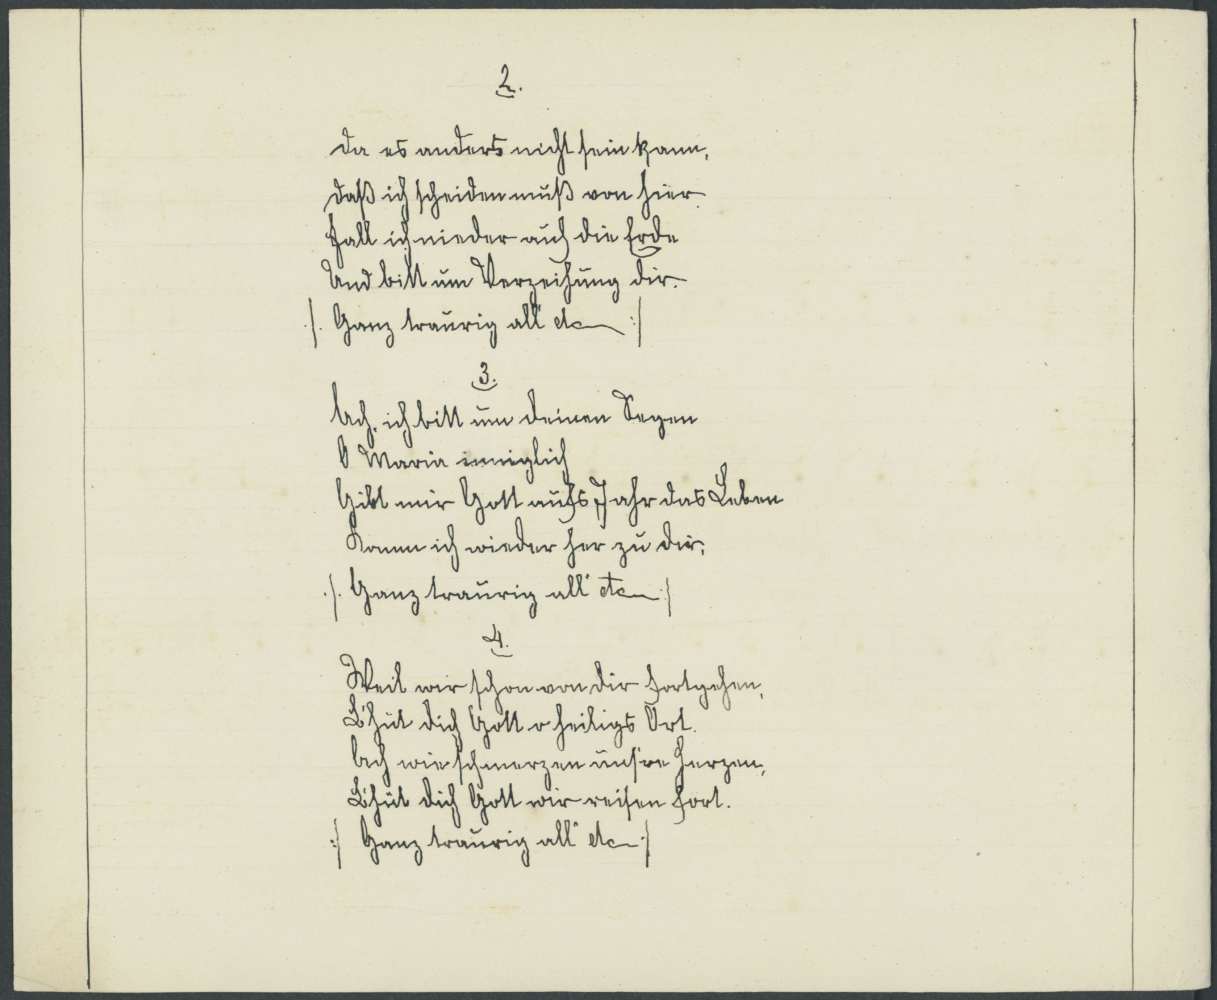 2.
Da es anders nicht sein kann,
daß ich scheiden muß von hier
Fall ich nieder auf die Erde
Und bitt um Verzeihung dir.
|: Ganz traurig all' etc :|
3.
Ach, ich bitt um deinen Segen
O Maria inniglich
Gibt mir Gott aufs Jahr das Leben
Komm ich wieder her zu dir,
|: Ganz traurig all' etc :|
4.
Weil wir schon von dir fortgehen,
B'hüt dich Gott o heiligs Ort.
Ach wie schmerzen uns're Herzen,
B'hüt dich Gott wir reisen fort.
:| Ganz traurig all' etc :|